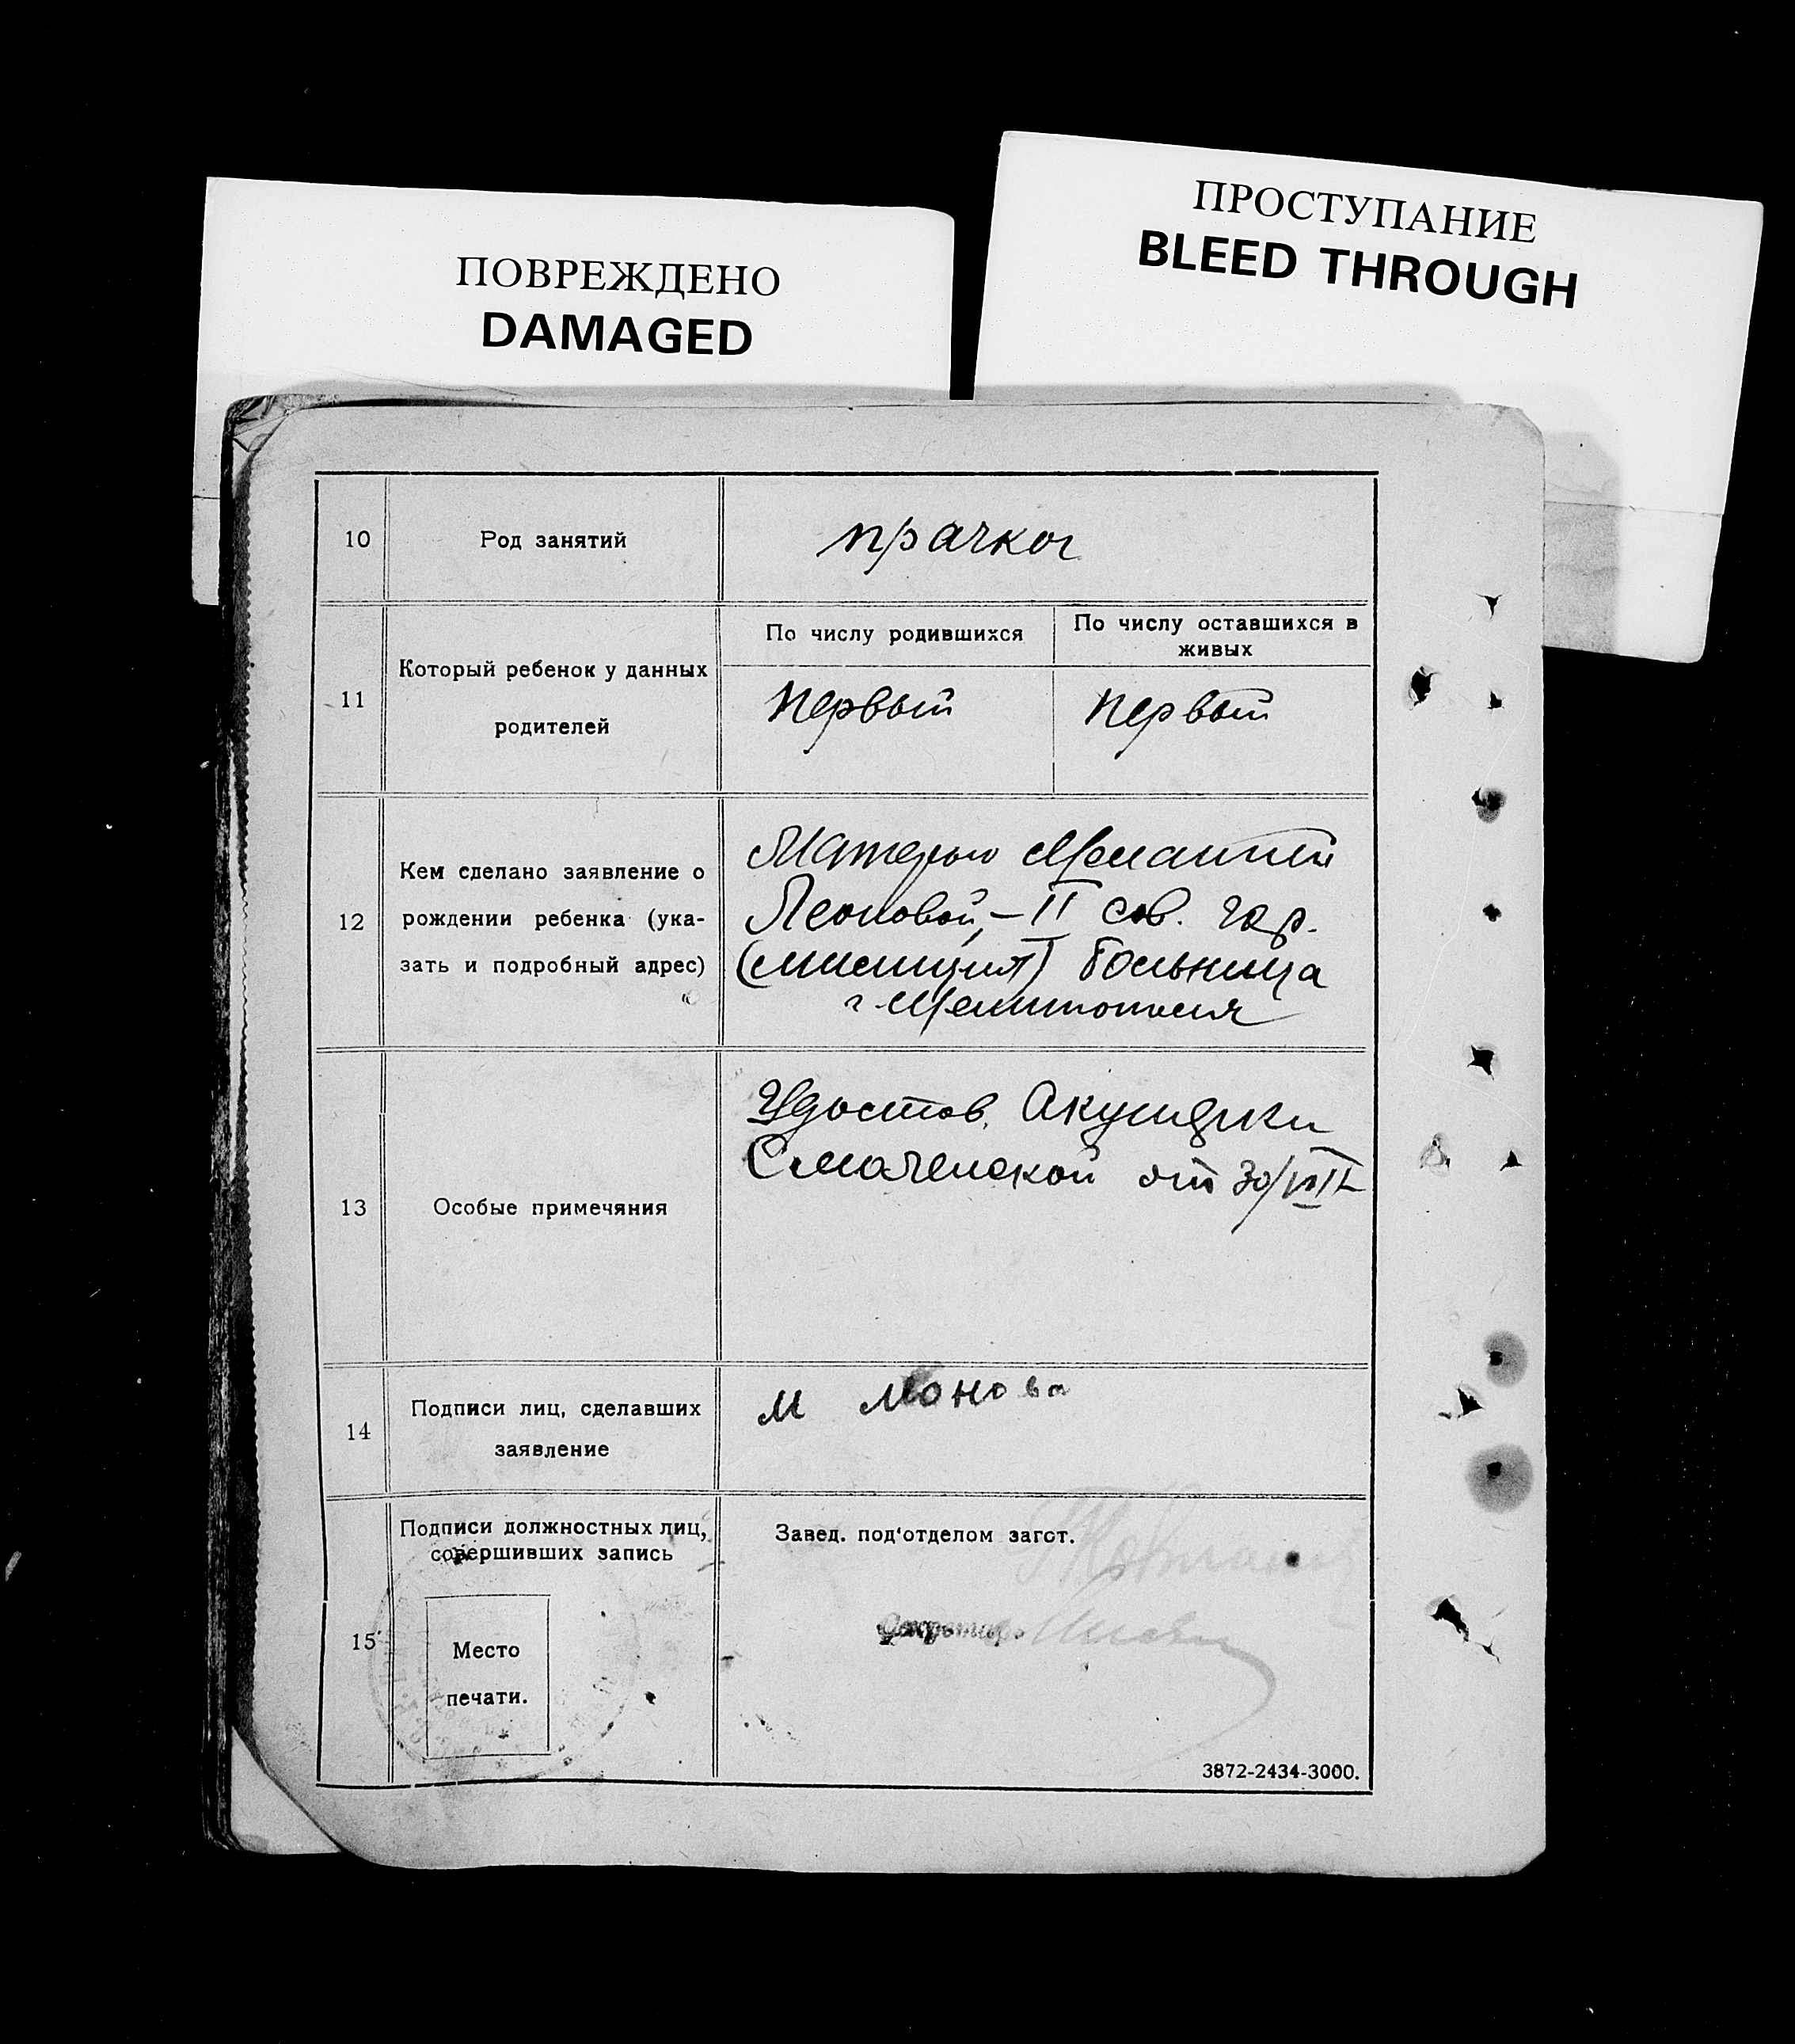 ПОВРЕЖДЕНО
DAMAGED
ПРОСТУПАНИЕ
BLEED THROUGH
10
Род занятий
прачка
11
Который ребенок у данных
родителей
По числу родившихся
По числу оставшихся в
живых
первый
первый
12
Кем сделано заявление о
рождении ребенка (ука-
зать и подробный адрес)
Матерью Меланией
Леоновой, – II сов. гор.
больница
г. Мелитополя
13
Особые примечяния
Удостов. Акушерки
от 30/VIII
14
Подписи лиц, сделавших
заявление
М
15
Подписи должностных лиц,
совершивших запись
Место
печати.
Завед. под'отделом загст.
Секретарь
3872-2434-3000.